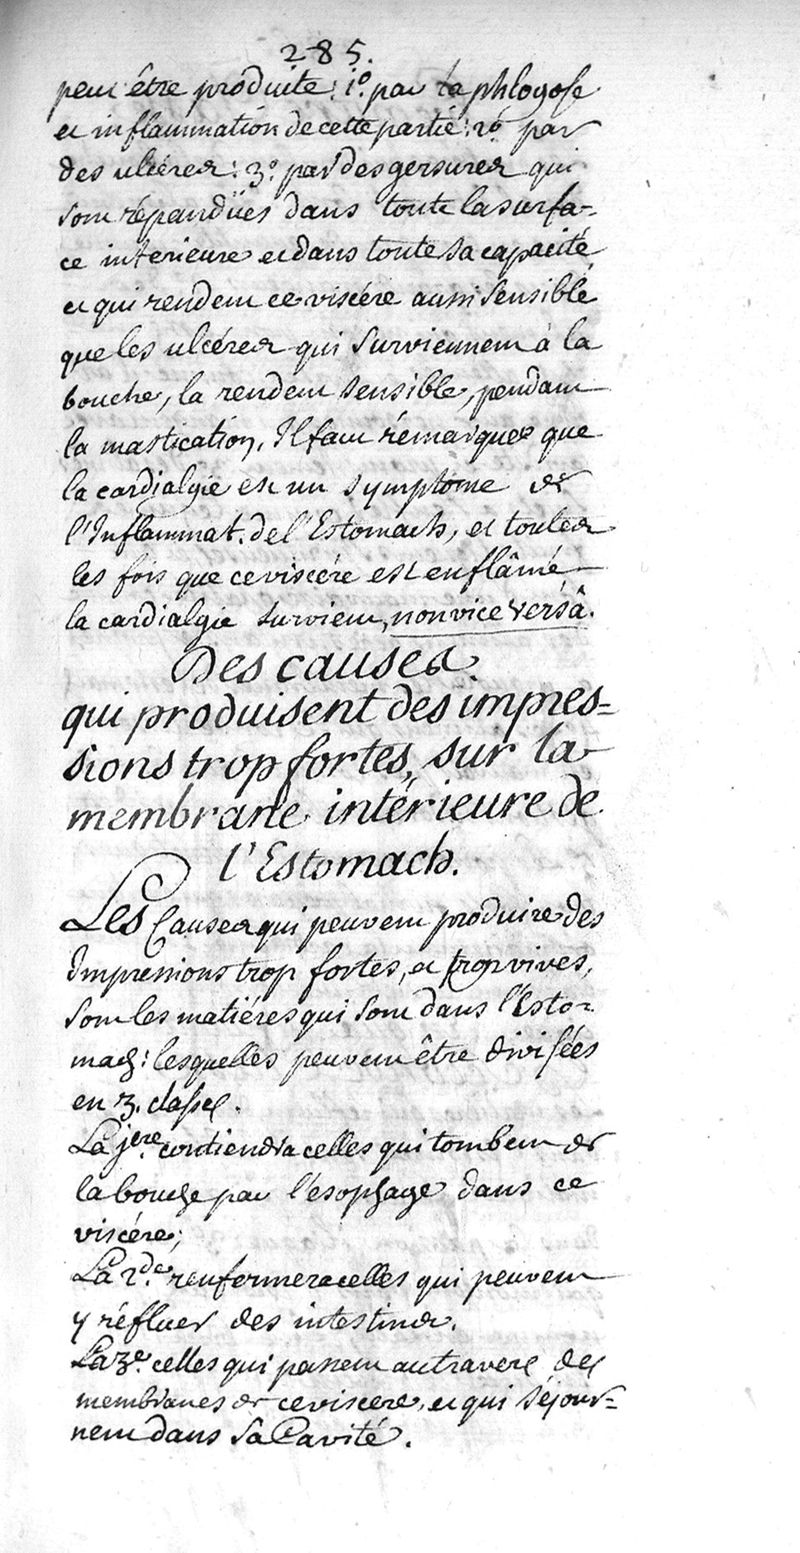 285.
peut être produite: 1.º par la phlogose
et inflammation de cette partie: 2.º par
des ulcéres: 3.º par des gersures qui
sont répandües dans toute la surfa-
ce interieure et dans toute sa capacité,
et qui rendent ce viscére aussi sensible
que les ulcéres qui surviennent à la
bouche, la rendent sensible, pendant
la mastication, Il faut rémarquer que
la cardialgie est un symptôme de
l'Inflammat. de l'Estomach, et toutes
les fois que ce viscére est enflâmé
la cardialgie survient, non vice versâ.
Des causes
qui produisent des impres=
sions trop fortes, sur la
membrane intérieure de
l'Estomach.
Les Causes qui peuvent produire des
Impressions trop fortes, et trop vives,
sont les matiéres qui sont dans l'Esto-
mach: lesquelles peuvent être divisées
en 3. classes.
La 1ere. contiendra celles qui tombent de
la bouche par l'ésophage dans ce
viscére;
La 2.de renfermera celles qui peuvent
y réfluer des intestins.
La 3.e celles qui passent au travers des
membranes de ce viscere, et qui séjour=
nent dans sa Cavité.